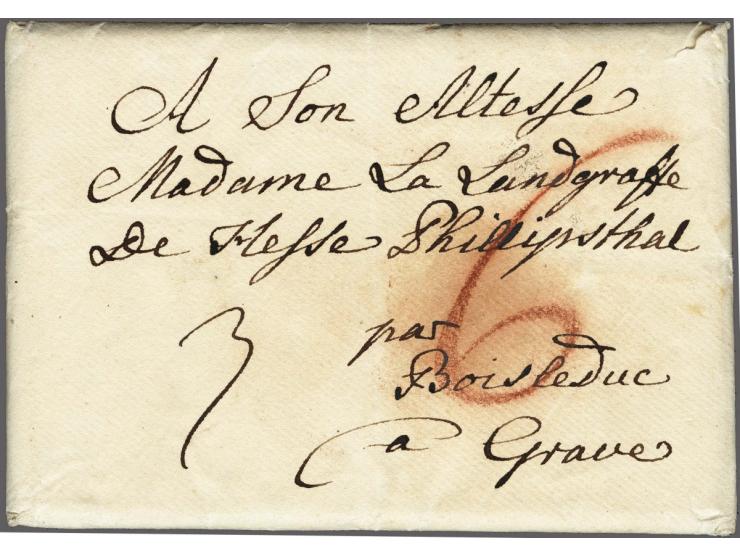 A Son Altesse
Madame La Landgraffe
De Hesse Phillipsthal
6
3
par
BoisleDuc
a Grave